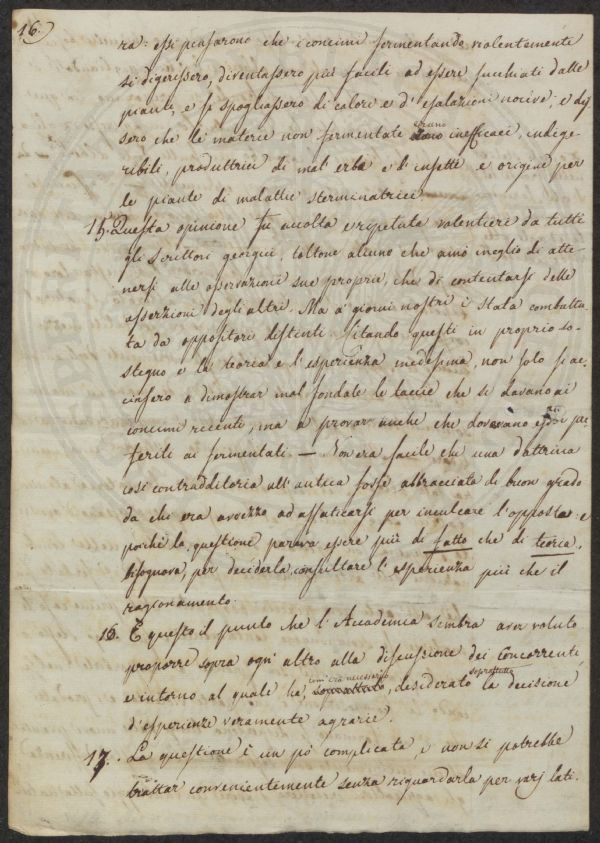 16.
ra: essi pensarono che i concimi fermentando violentemente
si digerissero, diventassero più facili ad essere succhiati dalle
piante, e si spogliassero di calore e d'esalazioni nocive; e dis
sero che le materie non fermentate erano inefficaci, indige
ribili, produttrici di mal'erbe e d'insetti e origine per
le piante di malattie sterminatrici
15. Questa opinione fu accolta e ripetuta volentieri da tutti
gli scrittori georgici, toltone alcuno che amò meglio di atte
nersi alle osservazioni sue proprie, che di contentarsi delle
asserzioni degli altri. Ma a' giorni nostri è stata combattu
ta da oppositori distinti. Citando questi in proprio so
stegno e la teoria e l'esperienza medesima, non solo si ac
cinsero a dimostrar mal fondate le taccie che si davano ai
concimi recenti, ma a provar anche che dovevano essi pre
ferirsi ai fermentati. — Non era facile che una dottrina
così contradditoria all'antica fosse abbracciata di buon grado
da chi era avvezzo ad affaticarsi per inculcare l'opposta: e
poichè la questione pareva essere più di fatto che di teorica,
bisognava, per deciderla, consultare l'esperienza più che il
ragionamento.
16. È questo il punto che l'Accademia sembra aver voluto
proporre sopra ogn'altro alla discussione dei concorrenti,
e intorno al quale ha, com'era necessario, desiderato soprattutto la decisione
d'esperienze veramente agrarie.
17. La questione è un pò complicata, e non si potrebbe
trattar convenientemente senza riguardarla per varj lati.